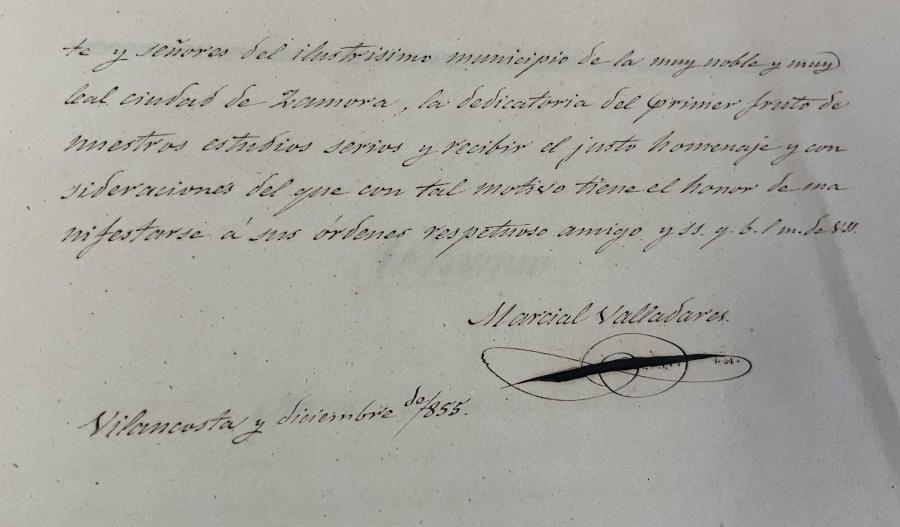 te y señores del ilustrisimo municipio de la muy noble y muy
leal ciudad de Zamora, la dedicatoria del primer fruto de
nuestros estudios sérios y recibir el justo homenaje y con
sideraciones del que con tal motivo tiene el honor de ma
nifestarse á sus órdenes respetuoso amigo y ss. q. b. l m. de VSS.
Marcial Valladares.
Vilancosta y diciembre de 1855.